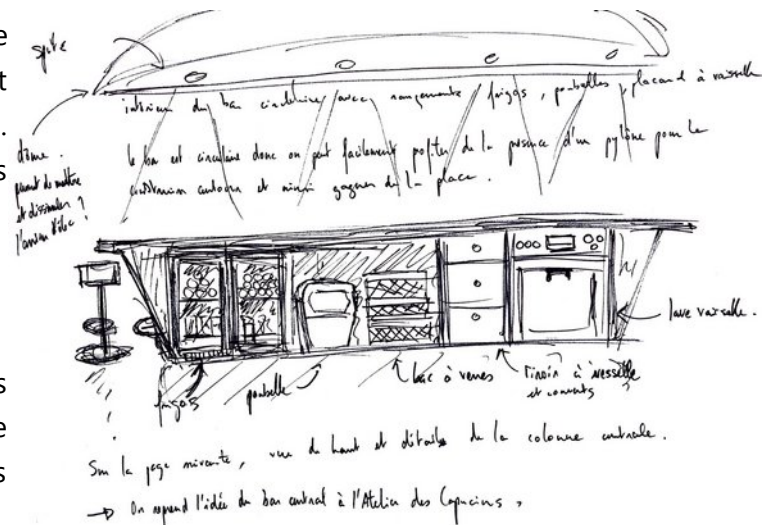 e
t
.
s
spots
dôme.
permet de mettre
et dissimuler
intérieur du bar circulaire avec rangements frigos, poubelles, placard à vaisselle
le bar est circulaire donc on peut facilement profiter de la présence d'un pylône pour le
construire autour et ainsi gagner de la place.
lave vaisselle.
frigos
poubelle
bac à verres
tiroir à vaisselle
et couverts
s
e
s
Sur la page suivante, vue de haut et détails de la colonne centrale.
→ On reprend l'idée du bar central à l'Atelier des Capucins,